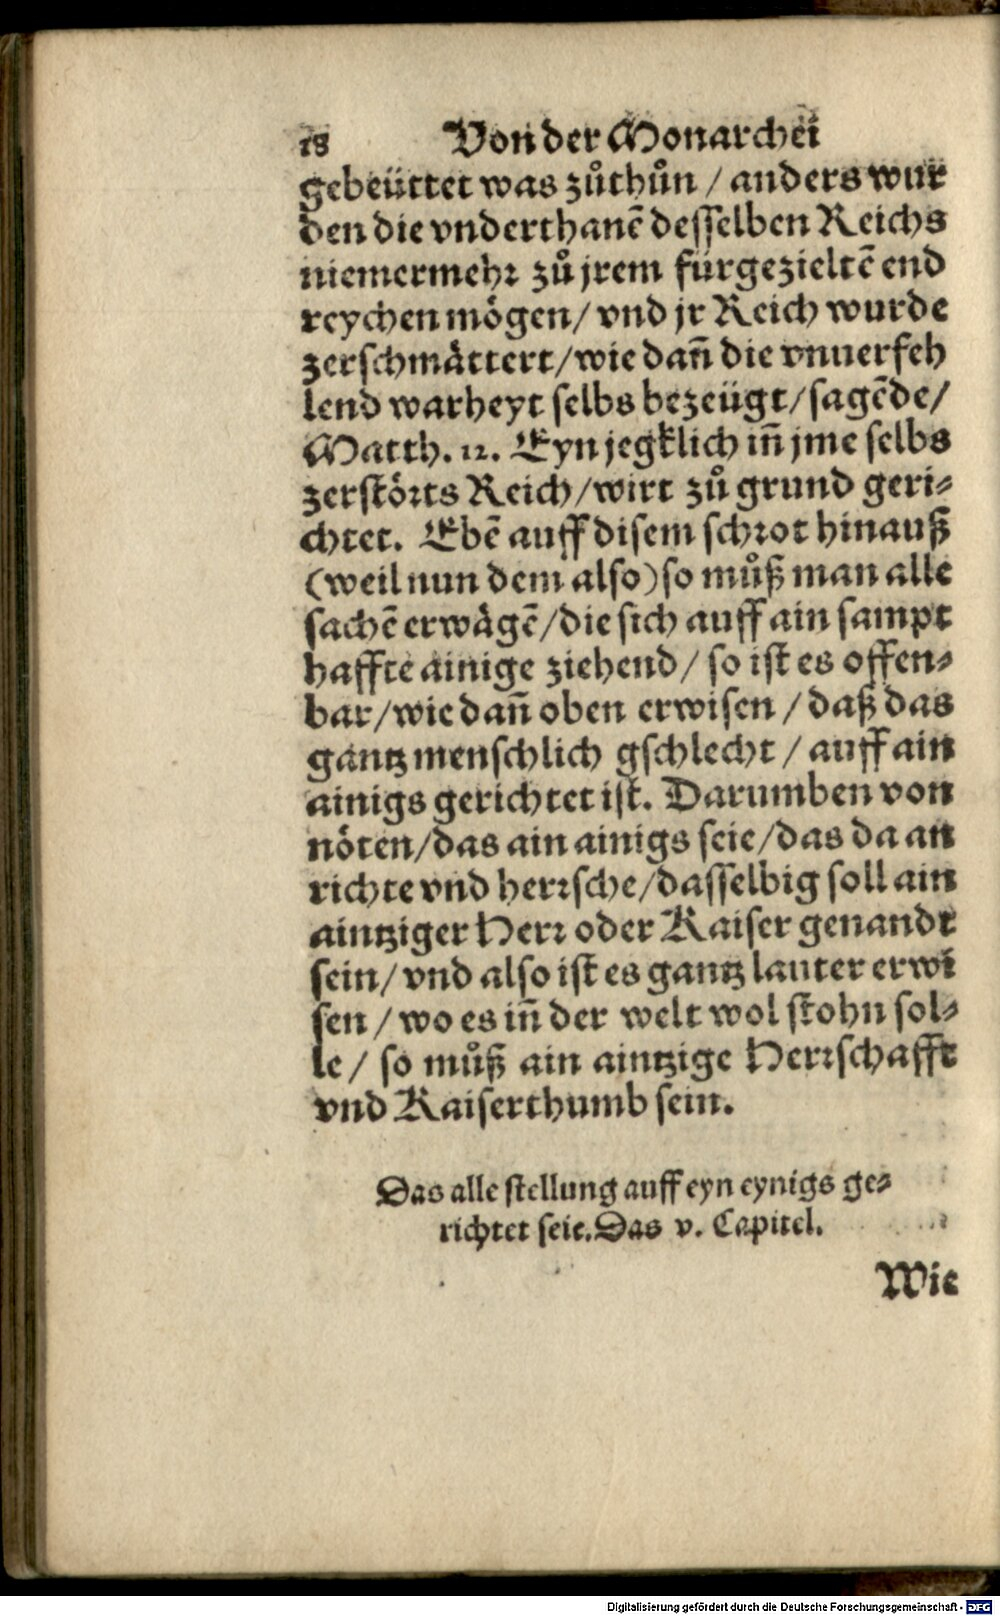 18 Von der Monarchei
gebeüttet was zůthůn / anders wur
den die vnderthanē desselben Reichs
niemermehr zů jrem fürgezieltē end
reychen mögen/ vnd jr Reich wurde
zerschmåttert/wie dañ die vnuerfeh
lend warheyt selbs bezeügt/sagēde/
Matth. 12. Eyn jegklich iñ jme selbs
zerstörts Reich/wirt zů grund geri⸗
chtet. Ebē auff disem schrot hinauß
(weil nun dem also)so můß man alle
sachē erwågē/die sich auff ain sampt
haffte ainige ziehend/ so ist es offen⸗
bar/wie dañ oben erwisen / daß das
gantz menschlich gschlecht / auff ain
ainigs gerichtet ist. Darumben von
nöten/das ain ainigs seie/das da an
richte vnd herrsche/dasselbig soll ain
aintziger Herr oder Kaiser genandt
sein/ vnd also ist es gantz lauter erwi
sen / wo es iñ der welt wol stohn sol⸗
le / so můß ain aintzige Herrschafft
vnd Kaiserthumb sein.
Das alle stellung auff eyn eynigs ge⸗
richtet seie. Das v. Capitel.
Wie
Digitalisierung gefördert durch die Deutsche Forschungsgemeinschaft - DFG